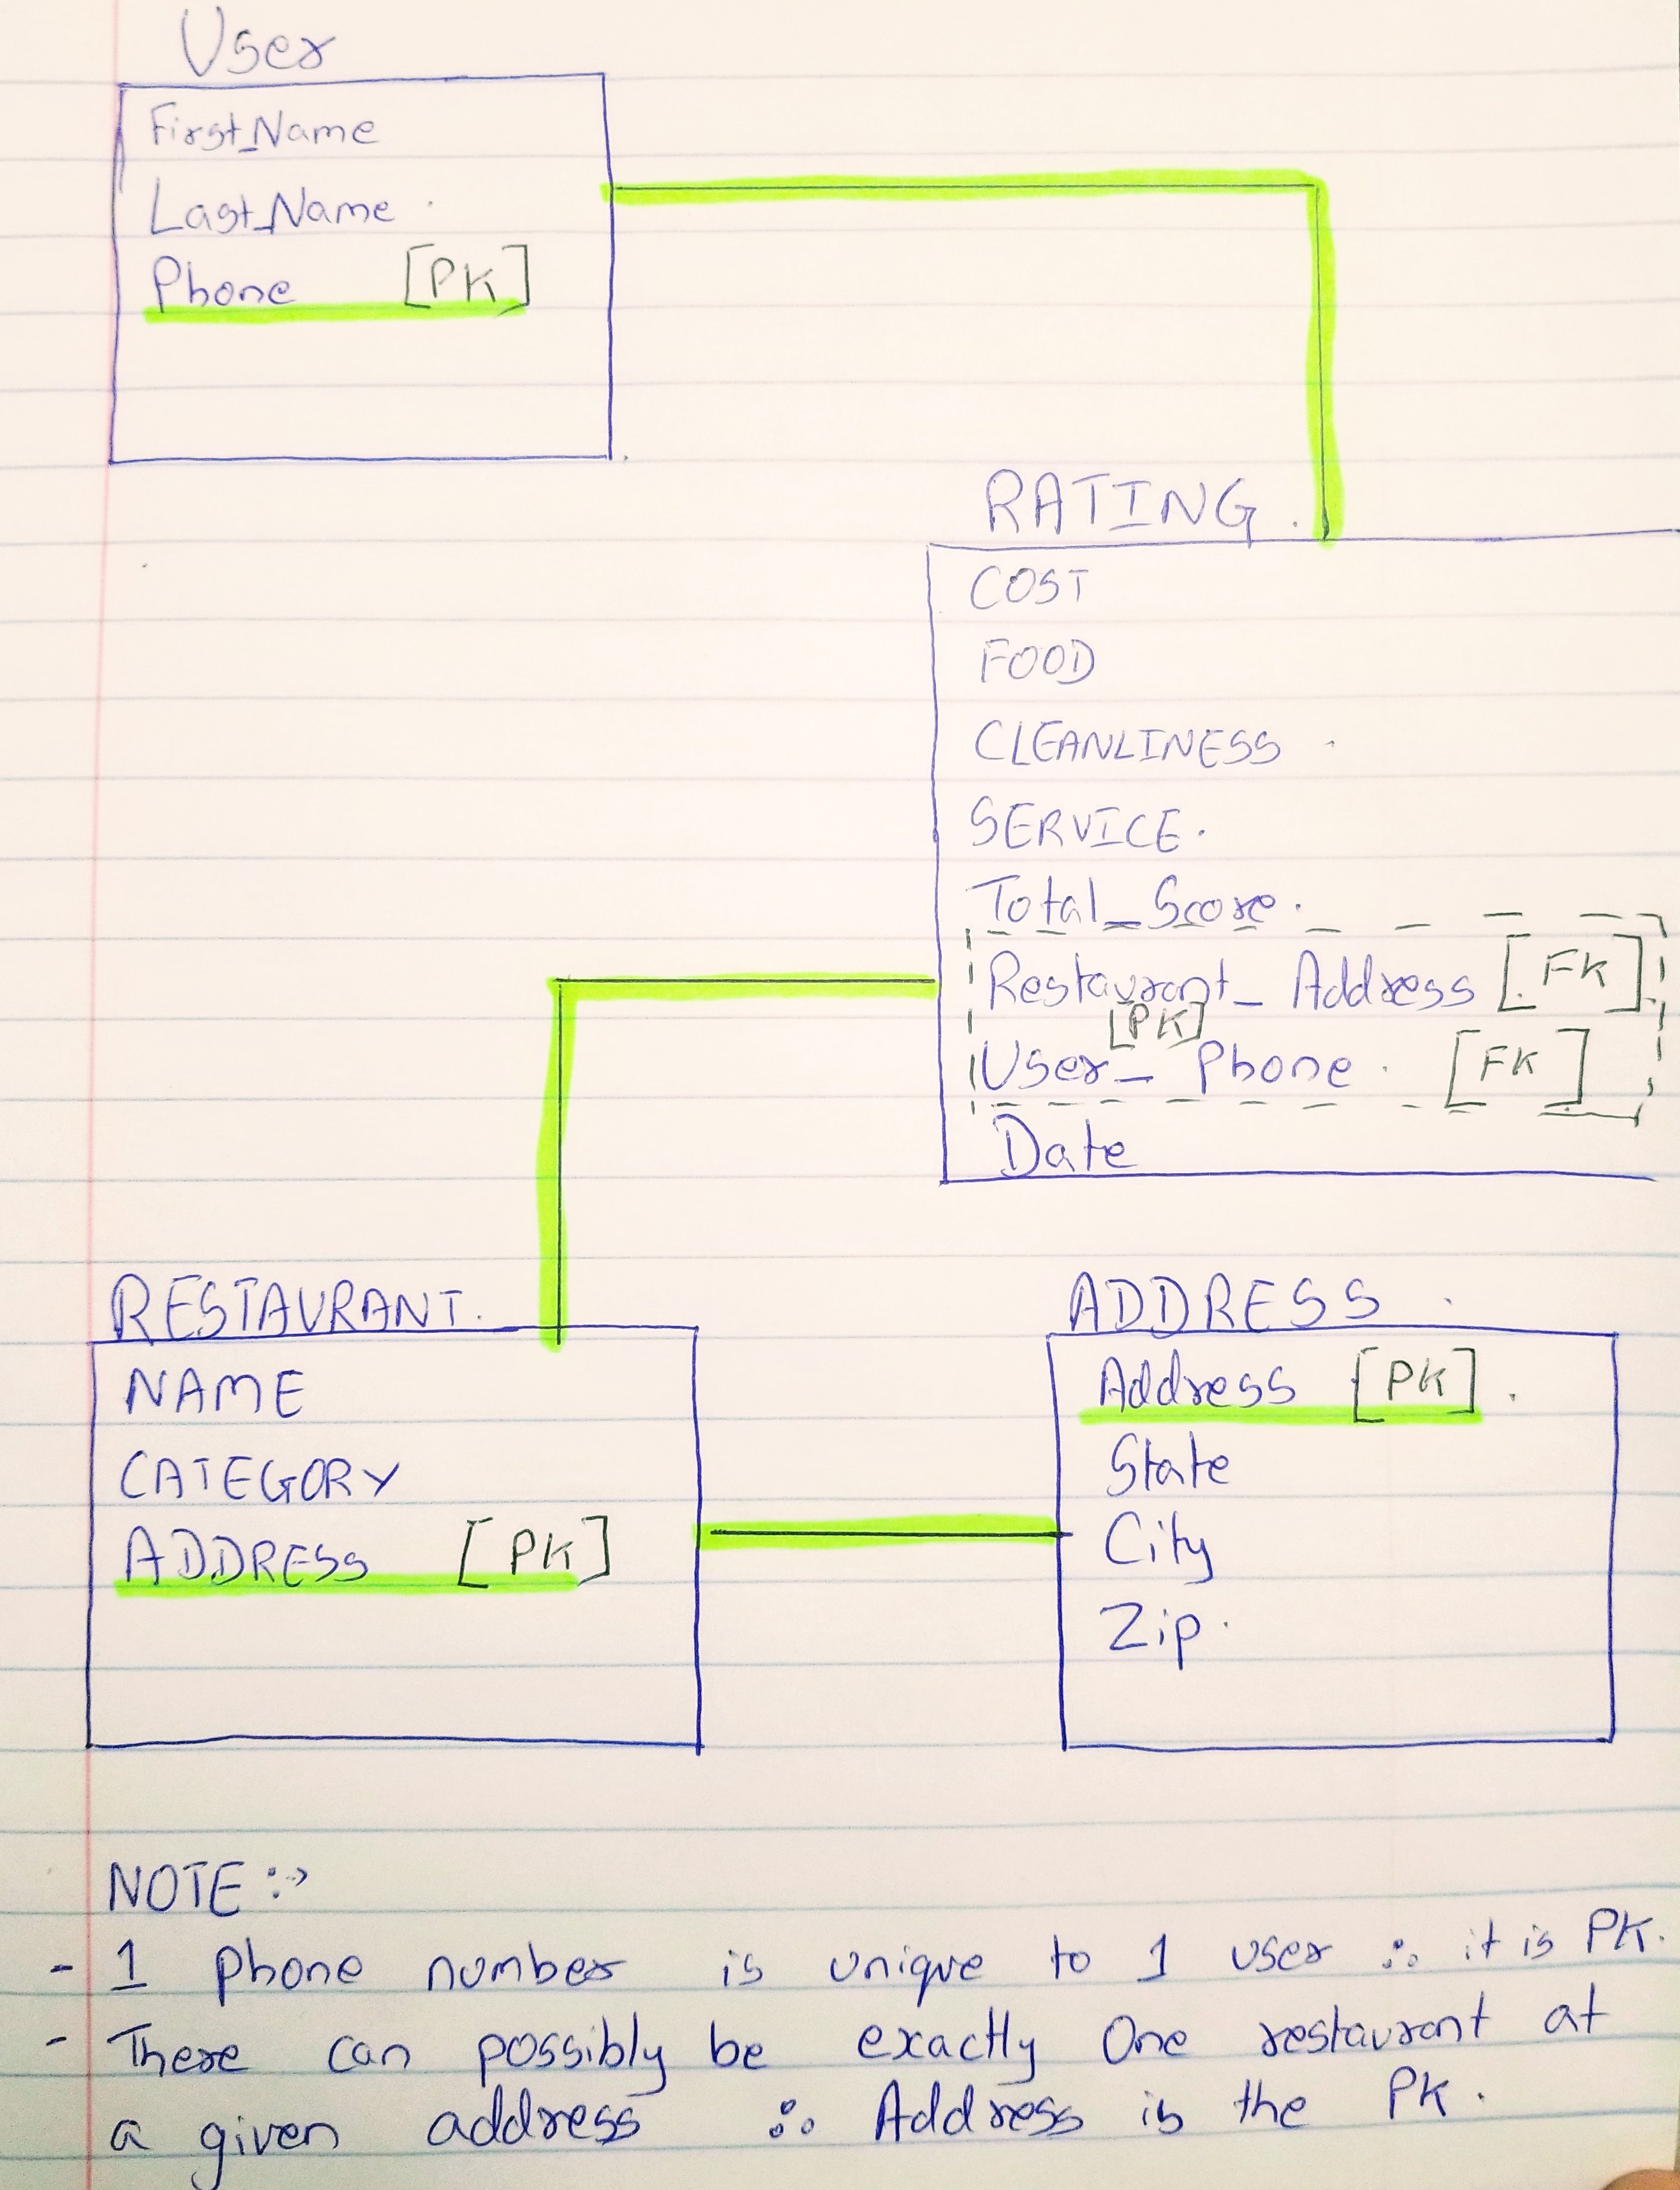 User
First_Name
Last_Name
Phone [PK]
RATING
COST
FOOD
CLEANLINESS
SERVICE.
Total_Score.
Restaurant_Address [FK]
[PK]
User_Phone [FK]
Date
RESTAURANT.
NAME
CATEGORY
ADDRESS [PK]
ADDRESS
Address [PK]
State
City
Zip
NOTE :→
- 1 phone number is unique to 1 user ∴ it is PK.
- There can possibly be exactly One restaurant at
a given address ∴ Address is the PK.